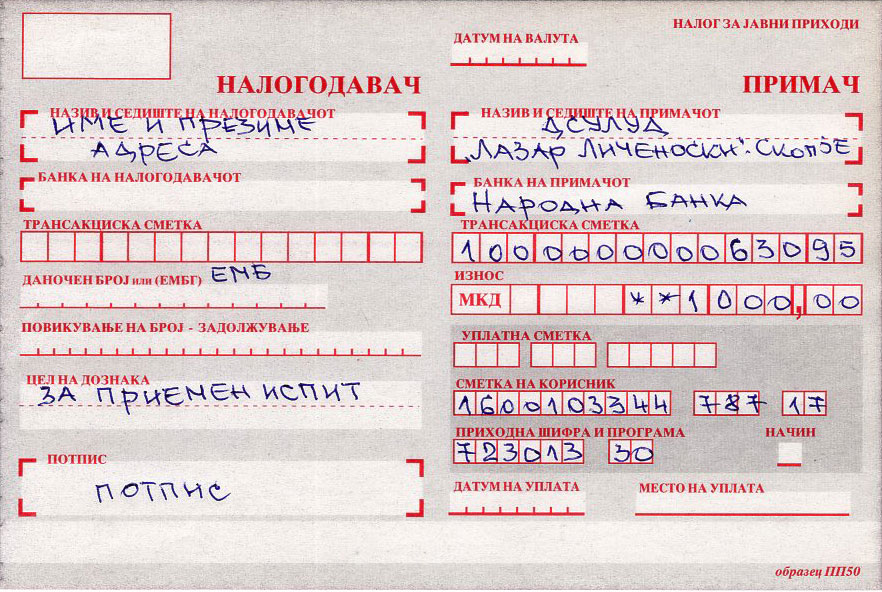 НАЛОГ ЗА ЈАВНИ ПРИХОДИ
ДАТУМ НА ВАЛУТА
НАЛОГОДАВАЧ
ПРИМАЧ
НАЗИВ И СЕДИШТЕ НА НАЛОГОДАВАЧОТ
ИМЕ И ПРЕЗИМЕ
АДРЕСА
БАНКА НА НАЛОГОДАВАЧОТ
ТРАНСАКЦИСКА СМЕТКА
ДАНОЧЕН БРОЈ или (ЕМБГ) ЕМБ
ПОВИКУВАЊЕ НА БРОЈ - ЗАДОЛЖУВАЊЕ
ЦЕЛ НА ДОЗНАКА
ЗА ПРИЕМЕН ИСПИТ
ПОТПИС
ПОТПИС
НАЗИВ И СЕДИШТЕ НА ПРИМАЧОТ
ДСУЛУД
„ЛАЗАР ЛИЧЕНОСКИ“-СКОПЈЕ
БАНКА НА ПРИМАЧОТ
НАРОДНА БАНКА
ТРАНСАКЦИСКА СМЕТКА
100000000063095
ИЗНОС
МКД **1000,00
УПЛАТНА СМЕТКА
СМЕТКА НА КОРИСНИК
1600103344 787 17
ПРИХОДНА ШИФРА И ПРОГРАМА НАЧИН
723013 30
ДАТУМ НА УПЛАТА МЕСТО НА УПЛАТА
образец ПП50